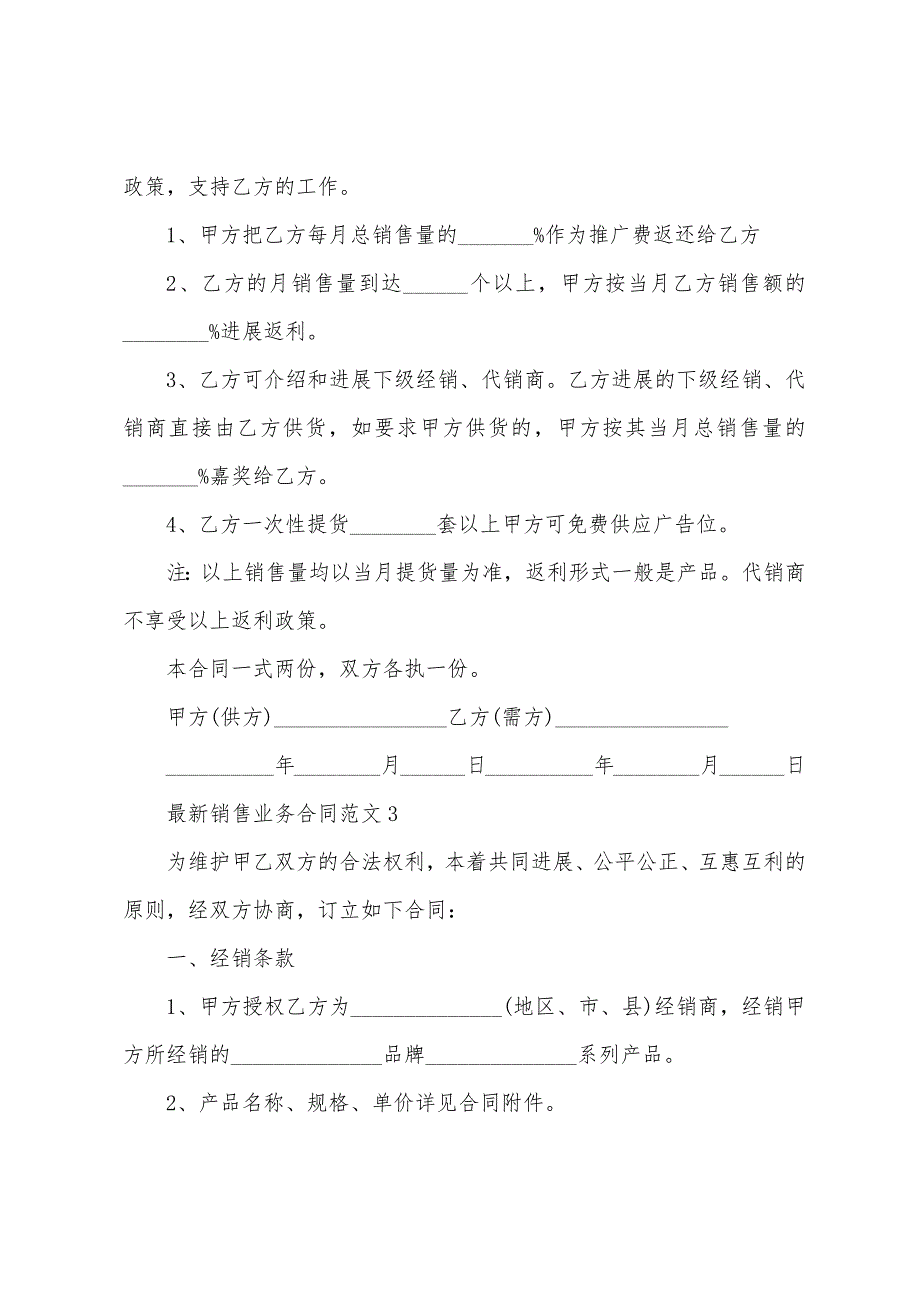 政策，支持乙方的工作。
1、甲方把乙方每月总销售量的_______%作为推广费返还给乙方
2、乙方的月销售量到达______个以上，甲方按当月乙方销售额的
________%进展返利。
3、乙方可介绍和进展下级经销、代销商。乙方进展的下级经销、代
销商直接由乙方供货，如要求甲方供货的，甲方按其当月总销售量的
_______%嘉奖给乙方。
4、乙方一次性提货________套以上甲方可免费供应广告位。
注：以上销售量均以当月提货量为准，返利形式一般是产品。代销商
不享受以上返利政策。
本合同一式两份，双方各执一份。
甲方(供方)________________乙方(需方)________________
__________年________月______日__________年________月______日
最新销售业务合同范文3
为维护甲乙双方的合法权利，本着共同进展、公平公正、互惠互利的
原则，经双方协商，订立如下合同：
一、经销条款
1、甲方授权乙方为______________(地区、市、县)经销商，经销甲
方所经销的______________品牌______________系列产品。
2、产品名称、规格、单价详见合同附件。